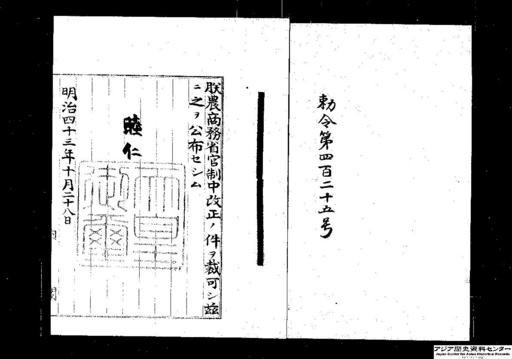 勅令第四百二十五号
朕農商務省官制中改正ノ件ヲ裁可シ茲
ニ之ヲ公布セシム
睦仁
天皇御璽
明治四十三年十月二十八日
アジア歴史資料センター
Japan Center for Asian Historical Records